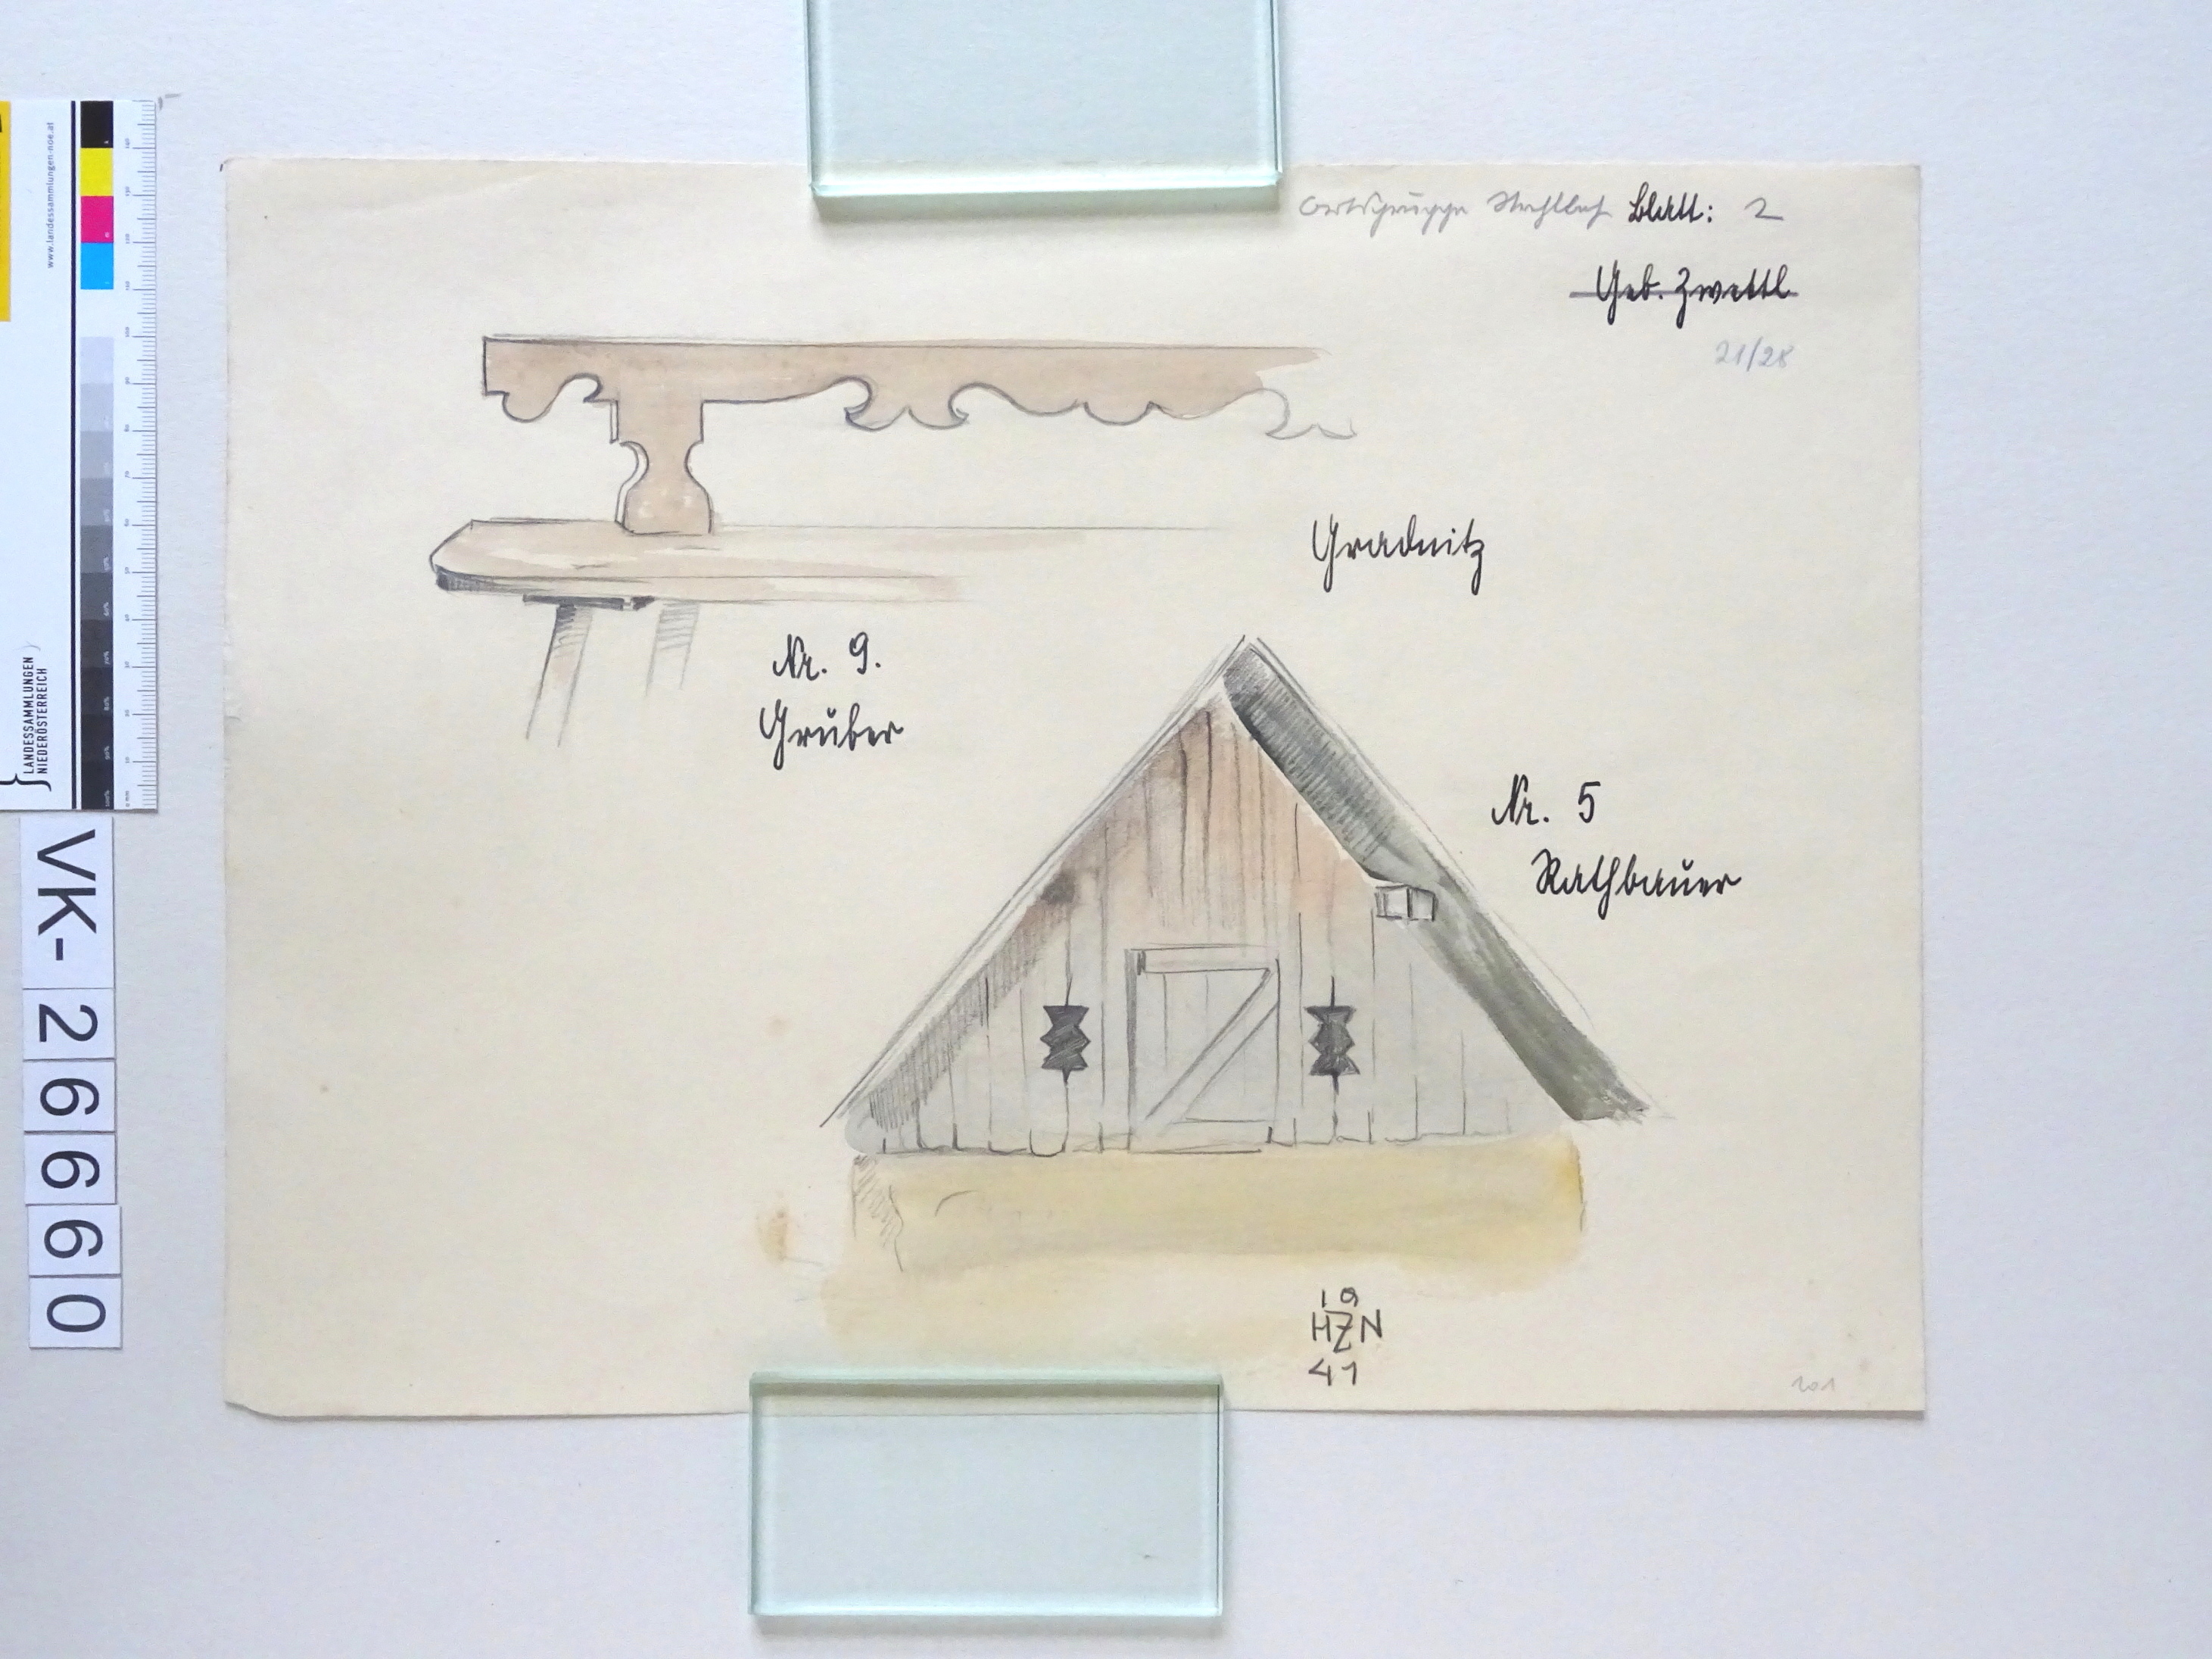 Ortsgruppe Blatt: 2
Geb. Zwettl
21/28
Gradnitz
Nr. 9.
Gruber
Nr. 5
Rathbauer
19
HZN
41
201
www.landessammlungen-noe.at
LANDESSAMMLUNGEN
NIEDERÖSTERREICH
VK-26660